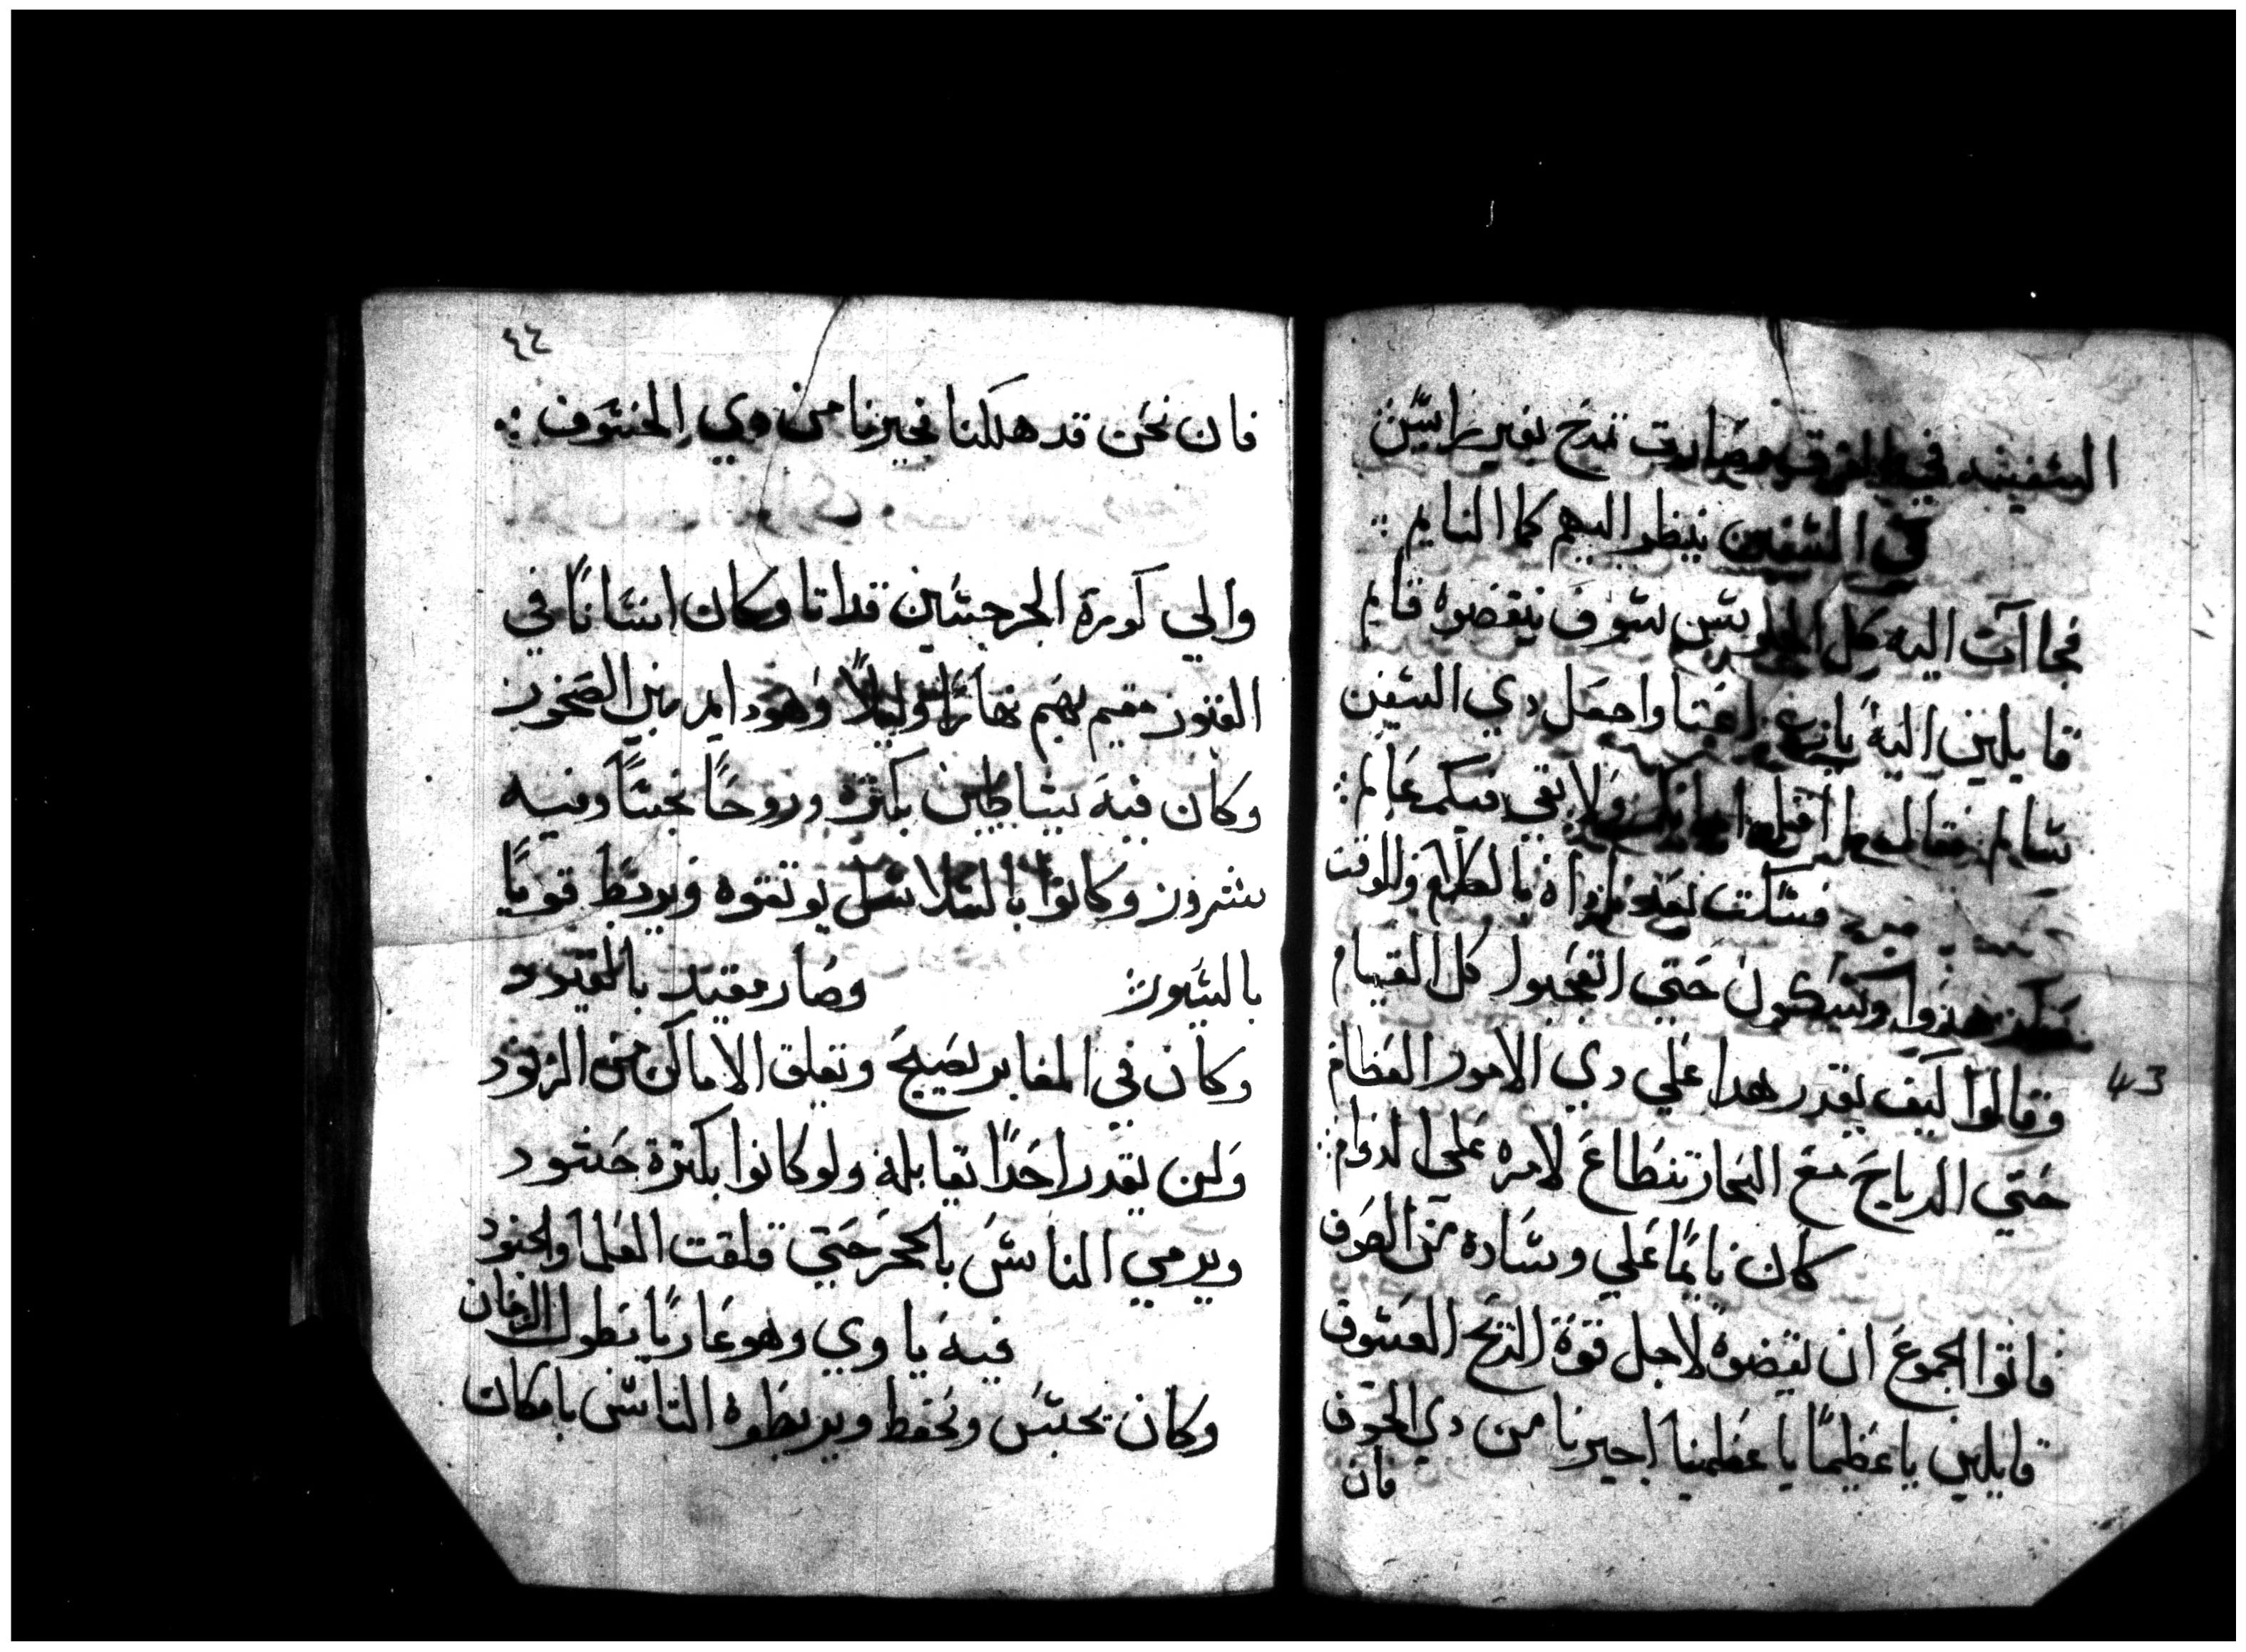 السفينه في الغرق وصارت تمدح بغير رايس
في السفين ينظر اليهم كما النايم ∴
فجاات اليه كل سوف ينقضوه قايم
قايلين اليه يا اعتنا واحمل دي السفين
سالم فقال ولا بقي فيكم عالم ∴
فسكت بعد بالكلام وللوقت
هدوا وسكون حتي اتعجبوا كل القيام
وقالوا كيف يقدر هدا علي دي الامور العظام
حتي الارياح مع البحار تنطاع لامره علي الدوام ∴
كان نايمًا علي وساده من الصوف
فاتوا الجموع ان يقضوه لاجل قوة الريح العسوف
قايلين يا عظيمًا يا عظمنا اجيرنا من دي الخوف
فان
43
٤٤
فان نحن قد هلكنا فجيرنا من دي الخسوف ∴
والي كورة الجرجسين قداتا وكان انسانًا في
القبور مقيم بهم نهارًا وليلًا وهو دايم بين الصخور
وكان فيه شياطين بكثره وروحًا نجسًا وفيه
شرور وكانوا بالسلاسل يوتقوه ويربط قويًا
بالسيور ∴ وصار مقيد بالقيود
وكان في المقابر يصيح وتقلق الاماكن من الزنود
ولن يقدر احدًا يقابله ولو كانوا بكثرة حشود
ويرمي الناس بالحجر حتي قلقت العلما والجنود
فيه ياوي وهو عاريًا بطول الزمان
وكان يحبس ويحفظ ويربطوه الناس بامكان